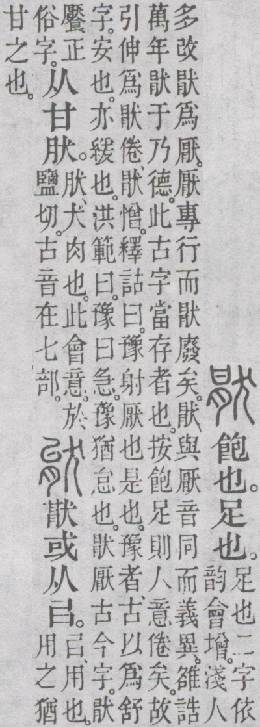 猒飽也。足也。足也二字依韵會增。淺人
多改猒爲厭。厭專行而猒廢矣。猒與厭音同而義異。雒誥
萬年猒于乃德。此古字當存者也。按飽足則人意倦矣。故
引伸爲猒倦、猒憎。釋詁曰。豫射厭也是也。豫者、古以爲舒
字。安也。亦緩也。洪範曰。豫曰急。豫猶怠也。猒厭古今字。猒
饜正俗字。从甘肰。肰、犬肉也。此會意。於鹽切。古音在七部。猒或从㠯。㠯用也。用之猶
甘之也。